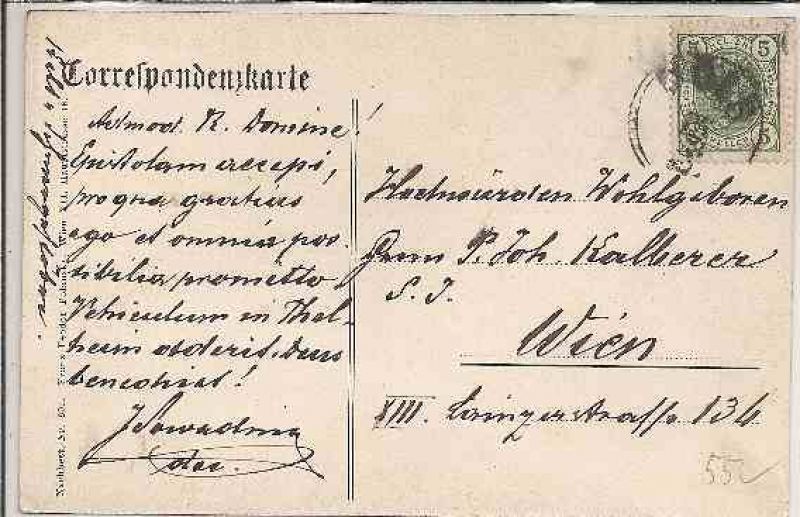 Correspondenzkarte
Admod. R. Domine!
Epistolam accepi,
pro qua gratias
ago et omnia pos-
sibilia promitto.
Vehiculum in Thal-
heim aderit. Deus
benedicat!
5 5
Hochwürden Wohlgeboren
Herrn P. Joh. Kalberer
S. J.
Wien
XIII. Lainzerstrasse 134
552